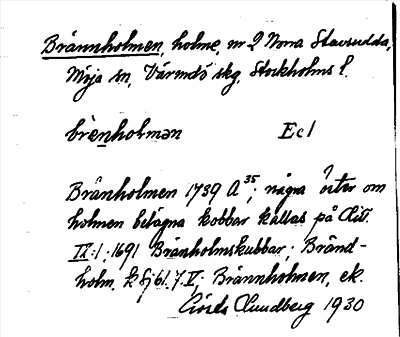 Brännholmen, holme, nr 2 Norra Stavsudda,
Möja sn, Värmdö skg, Stockholms l.
brènholmən Ec1
Bränholmen 1739 A 35; några öster om
holmen belägna kobbar kallas på
IX:1; 1691 Bränholmskubbar; Bränd-
holm, Brännholmen, ek.
Lundberg 1930